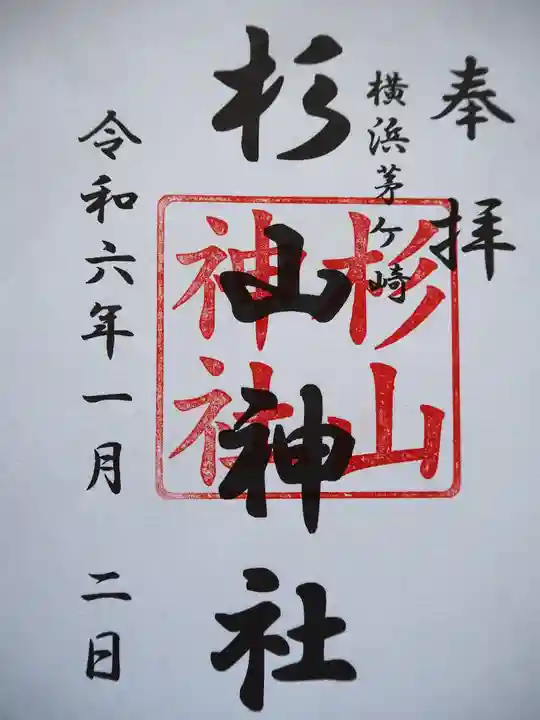 奉拝
横浜茅ケ崎
杉山神社
杉山
神社
令和六年一月 二日